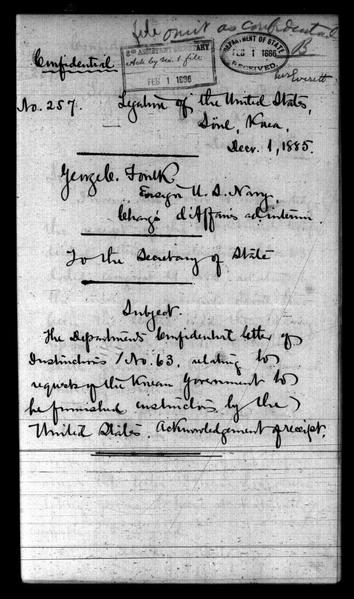 file omit as confidential
Confidential
3D ASSISTANT SECRETARY
Ack by No. 1 file
FEB 1 1886
DEPARTMENT OF STATE
FEB 1 1886
RECEIVED
Mr Everett
No. 257.
Legation of the United States,
Söul, Korea,
Decr. 1, 1885.
George C. Foulk
Ensign U. S. Navy,
Chargé d'Affaires ad interim
To the Secretary of State
Subject.
The Department's Confidential letter of
Instructions, No. 63, relating to
requests of the Korean Government to
be furnished instructors by the
United States. Acknowledgement of receipt.